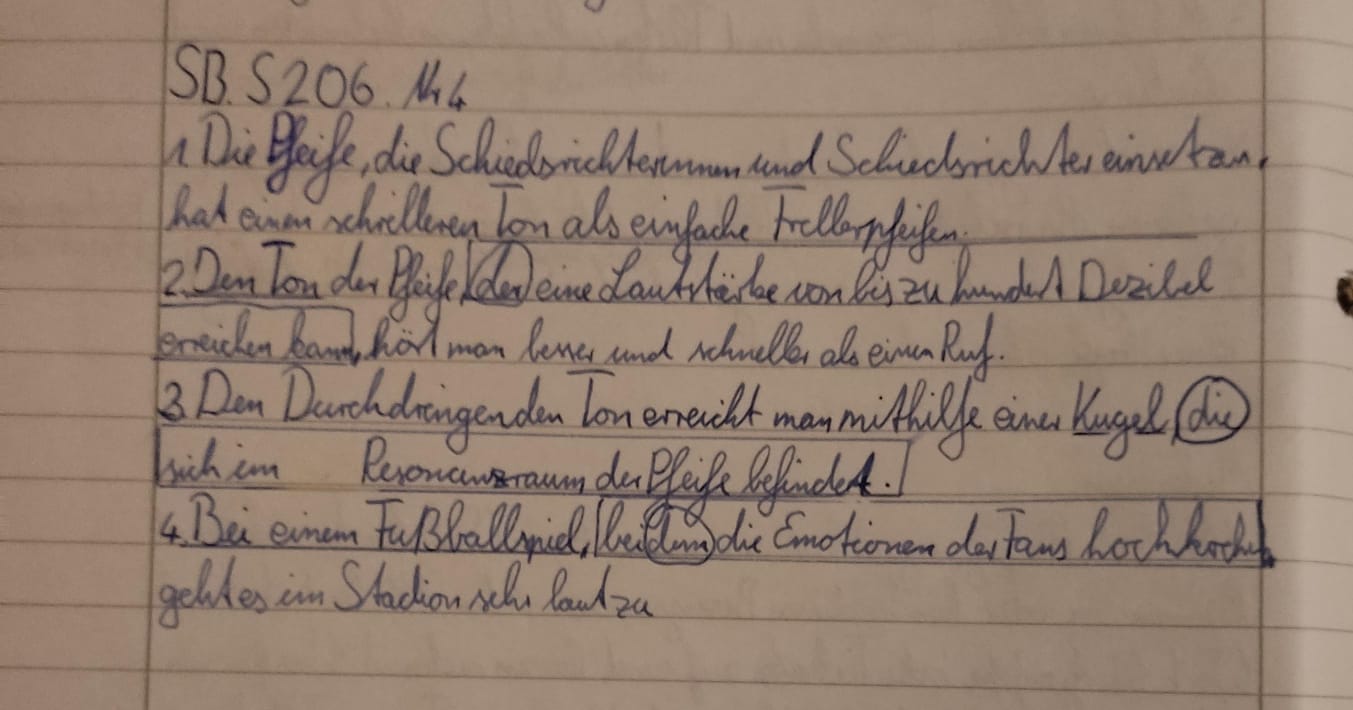 SB. S 206. Nr 4
1. Die Pfeife, die Schiedsrichterinnen und Schiedsrichter einsetzen,
hat einen schrilleren Ton als einfache Trellerpfeifen.
2. Den Ton der Pfeife, der eine Lautstärke von bis zu hundert Dezibel
erreichen kann, hört man besser und schneller als einen Ruf.
3. Den Durchdringenden Ton erreicht man mithilfe einer Kugel, die
sich im Resonanzraum der Pfeife befindet.
4. Bei einem Fußballspiel, bei dem die Emotionen der Fans hochkochen,
geht es im Stadion sehr laut zu